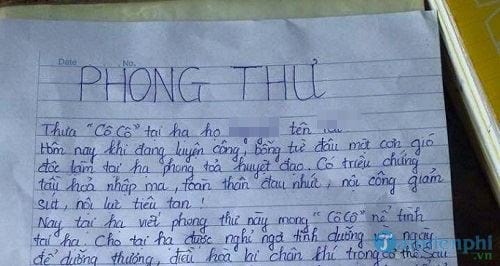 Date No.
PHONG THƯ
Thưa "Cô Cô" tại hạ họ tên
Hôm nay khi đang luyện công, bỗng từ đâu một cơn gió
độc làm tại hạ phong toả huyệt đạo. Có triệu chứng
tẩu hoả nhập ma, toàn thân đau nhức, nội công giảm
sút, nội lực tiêu tan!
Nay tại hạ viết phong thư này mong "Cô Cô" nể tình
tại hạ. Cho tại hạ được nghỉ ngơi tĩnh dưỡng ngay
để dưỡng thương, điều hoà bị chân khí trong cơ thể sau
.vn